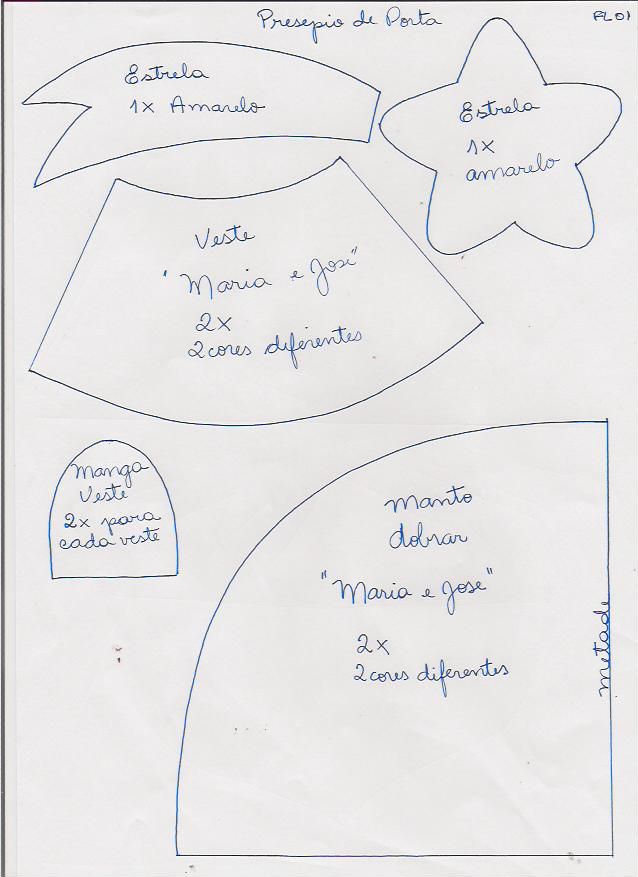 Presepio de Porta
FL01
Estrela
1x Amarelo
Estrela
1x
amarelo
Veste
"Maria e José"
2x
2 cores diferentes
Manga
Veste
2x para
cada veste
Manto
dobrar
"Maria e Jose"
2x
2 cores diferentes
metade